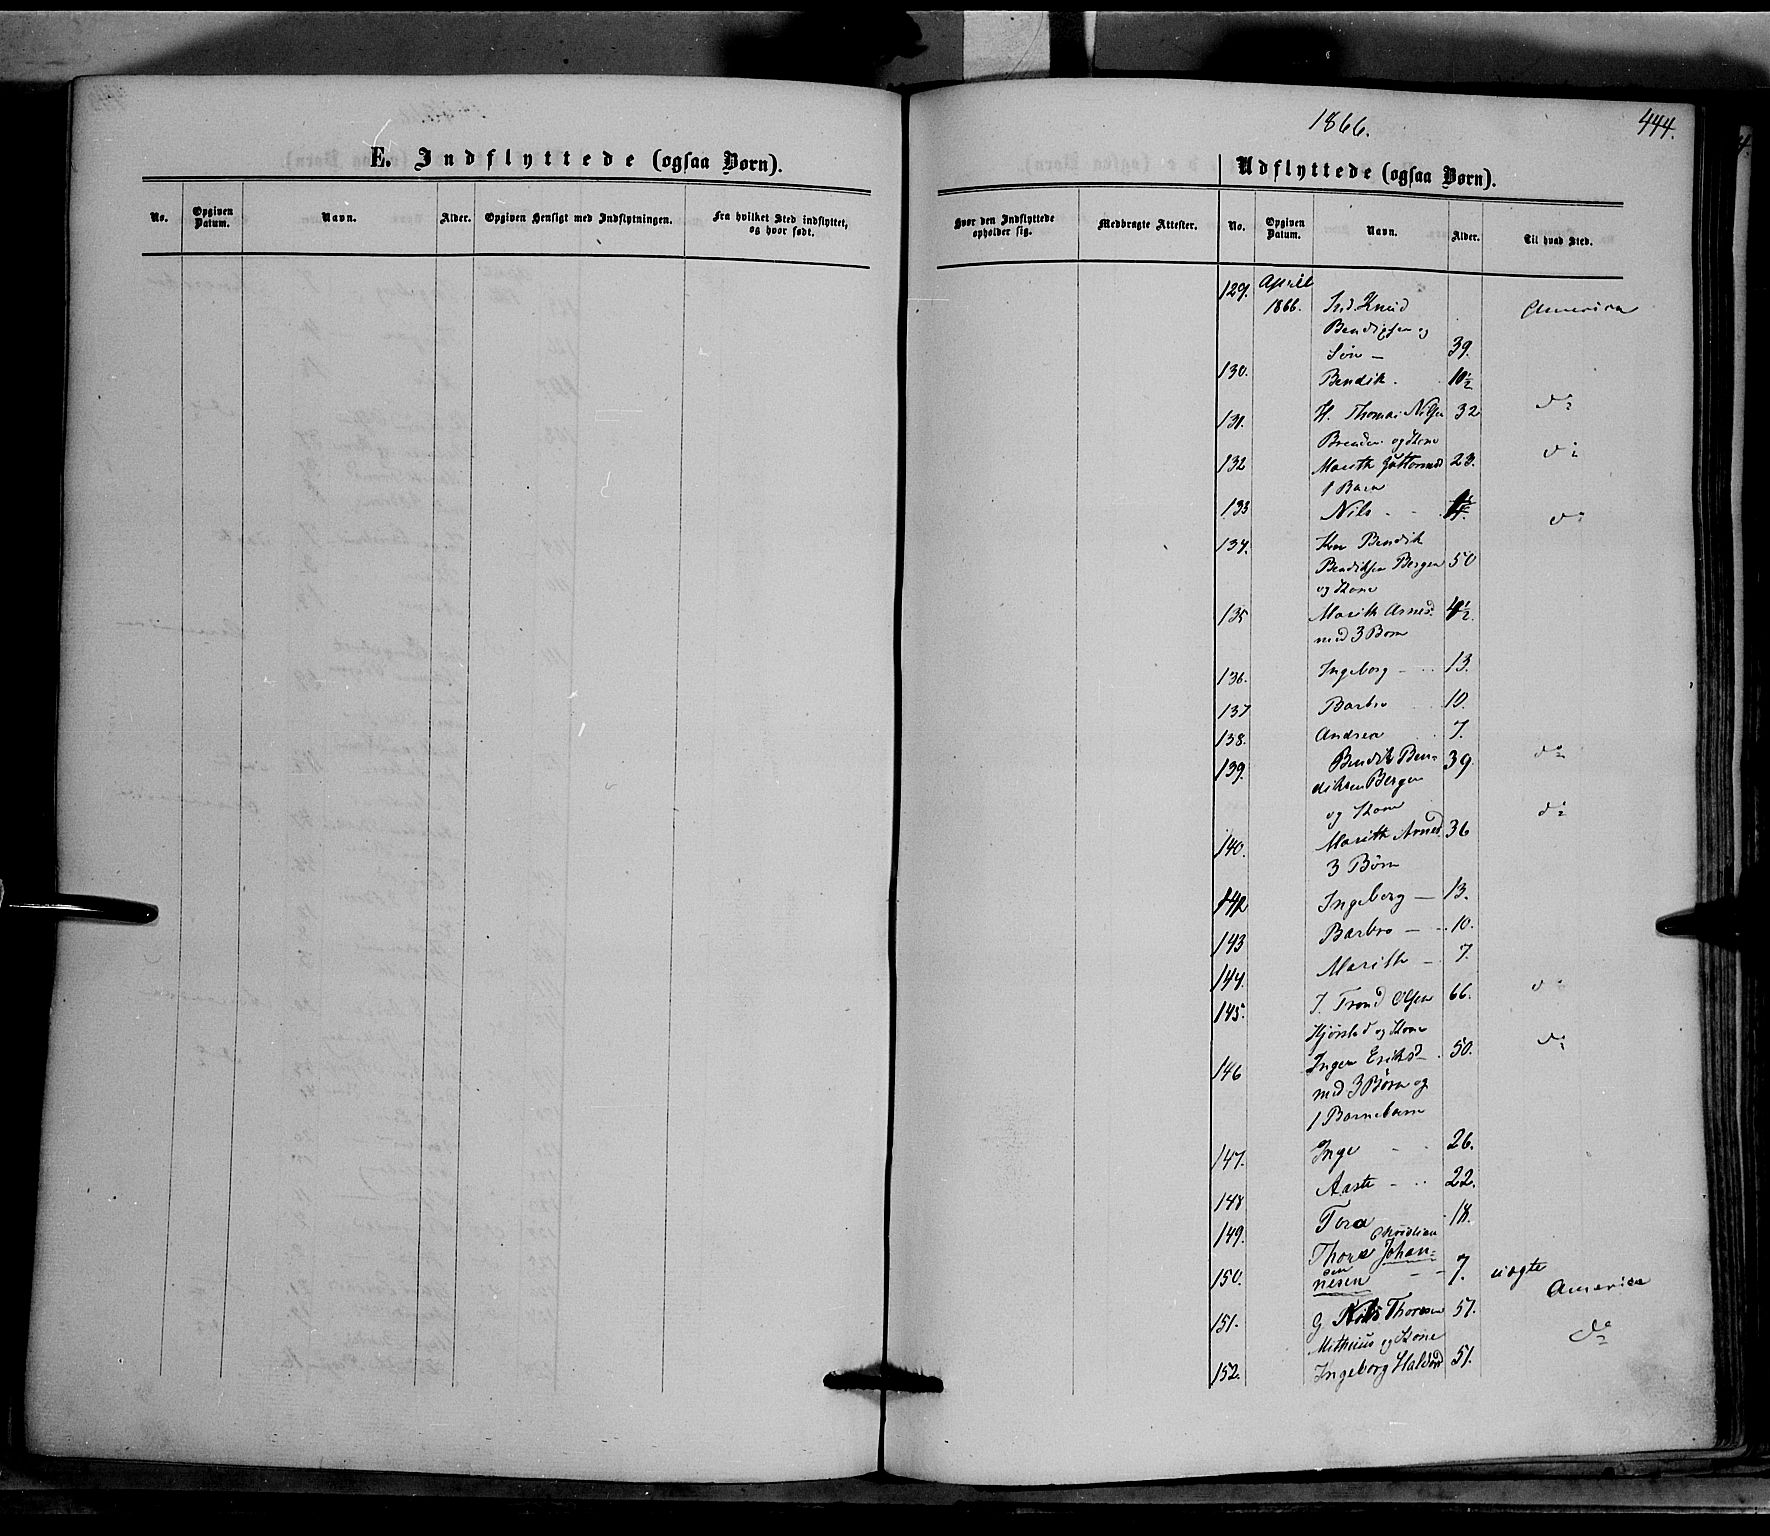 1866.
444.
E. Indflyttede (ogsaa Børn).
No.
Opgiven Datum.
Navn.
Alder.
Opgiven Hensigt med Indflytningen.
Fra hvilket Sted indflyttet, og hvor født.
Udflyttede (ogsaa Børn).
Hvor den Indflyttede opholder sig.
Medbragte Attester.
No.
Opgiven Datum.
Navn.
Alder.
Til hvad Sted.
129. April
1866. Ind. Knud America
Bendiksen og
Søn — 39.
130. Bendik. 10½
131. H. Thomas Nilsen 32 do
Brenden og Kone
132 Marith Guttormsd 23. do
1 Barn
133 Nils
134. Bendik do
Bendiksen Bergen 50
og Kone
135 Marith Arnesd
med 3 Børn
136. Ingeborg — 13.
137 Barbro 10.
138. Andrea 7.
139. Bendik Ben- 39. do
diksen Bergen
og Kone do
140. Marith Arnesd 36
3 Børn
142 Ingeborg — 13.
143 Barbro — 10.
144. Marith — 7.
145. J. Trond Olsen 66. do
Hjørstad og Kone
146 Ingen Eriksd 50. do
med 3 Børn og
1 Barnebarn
147. Inge 26.
148 Aaste 22.
149. Tora 18.
Christian
Thore Johan-
150. nesen 7. uægte
America
151. G. Nils Thoresen 57.
og Kone do
152. Ingeborg Haldord 51.